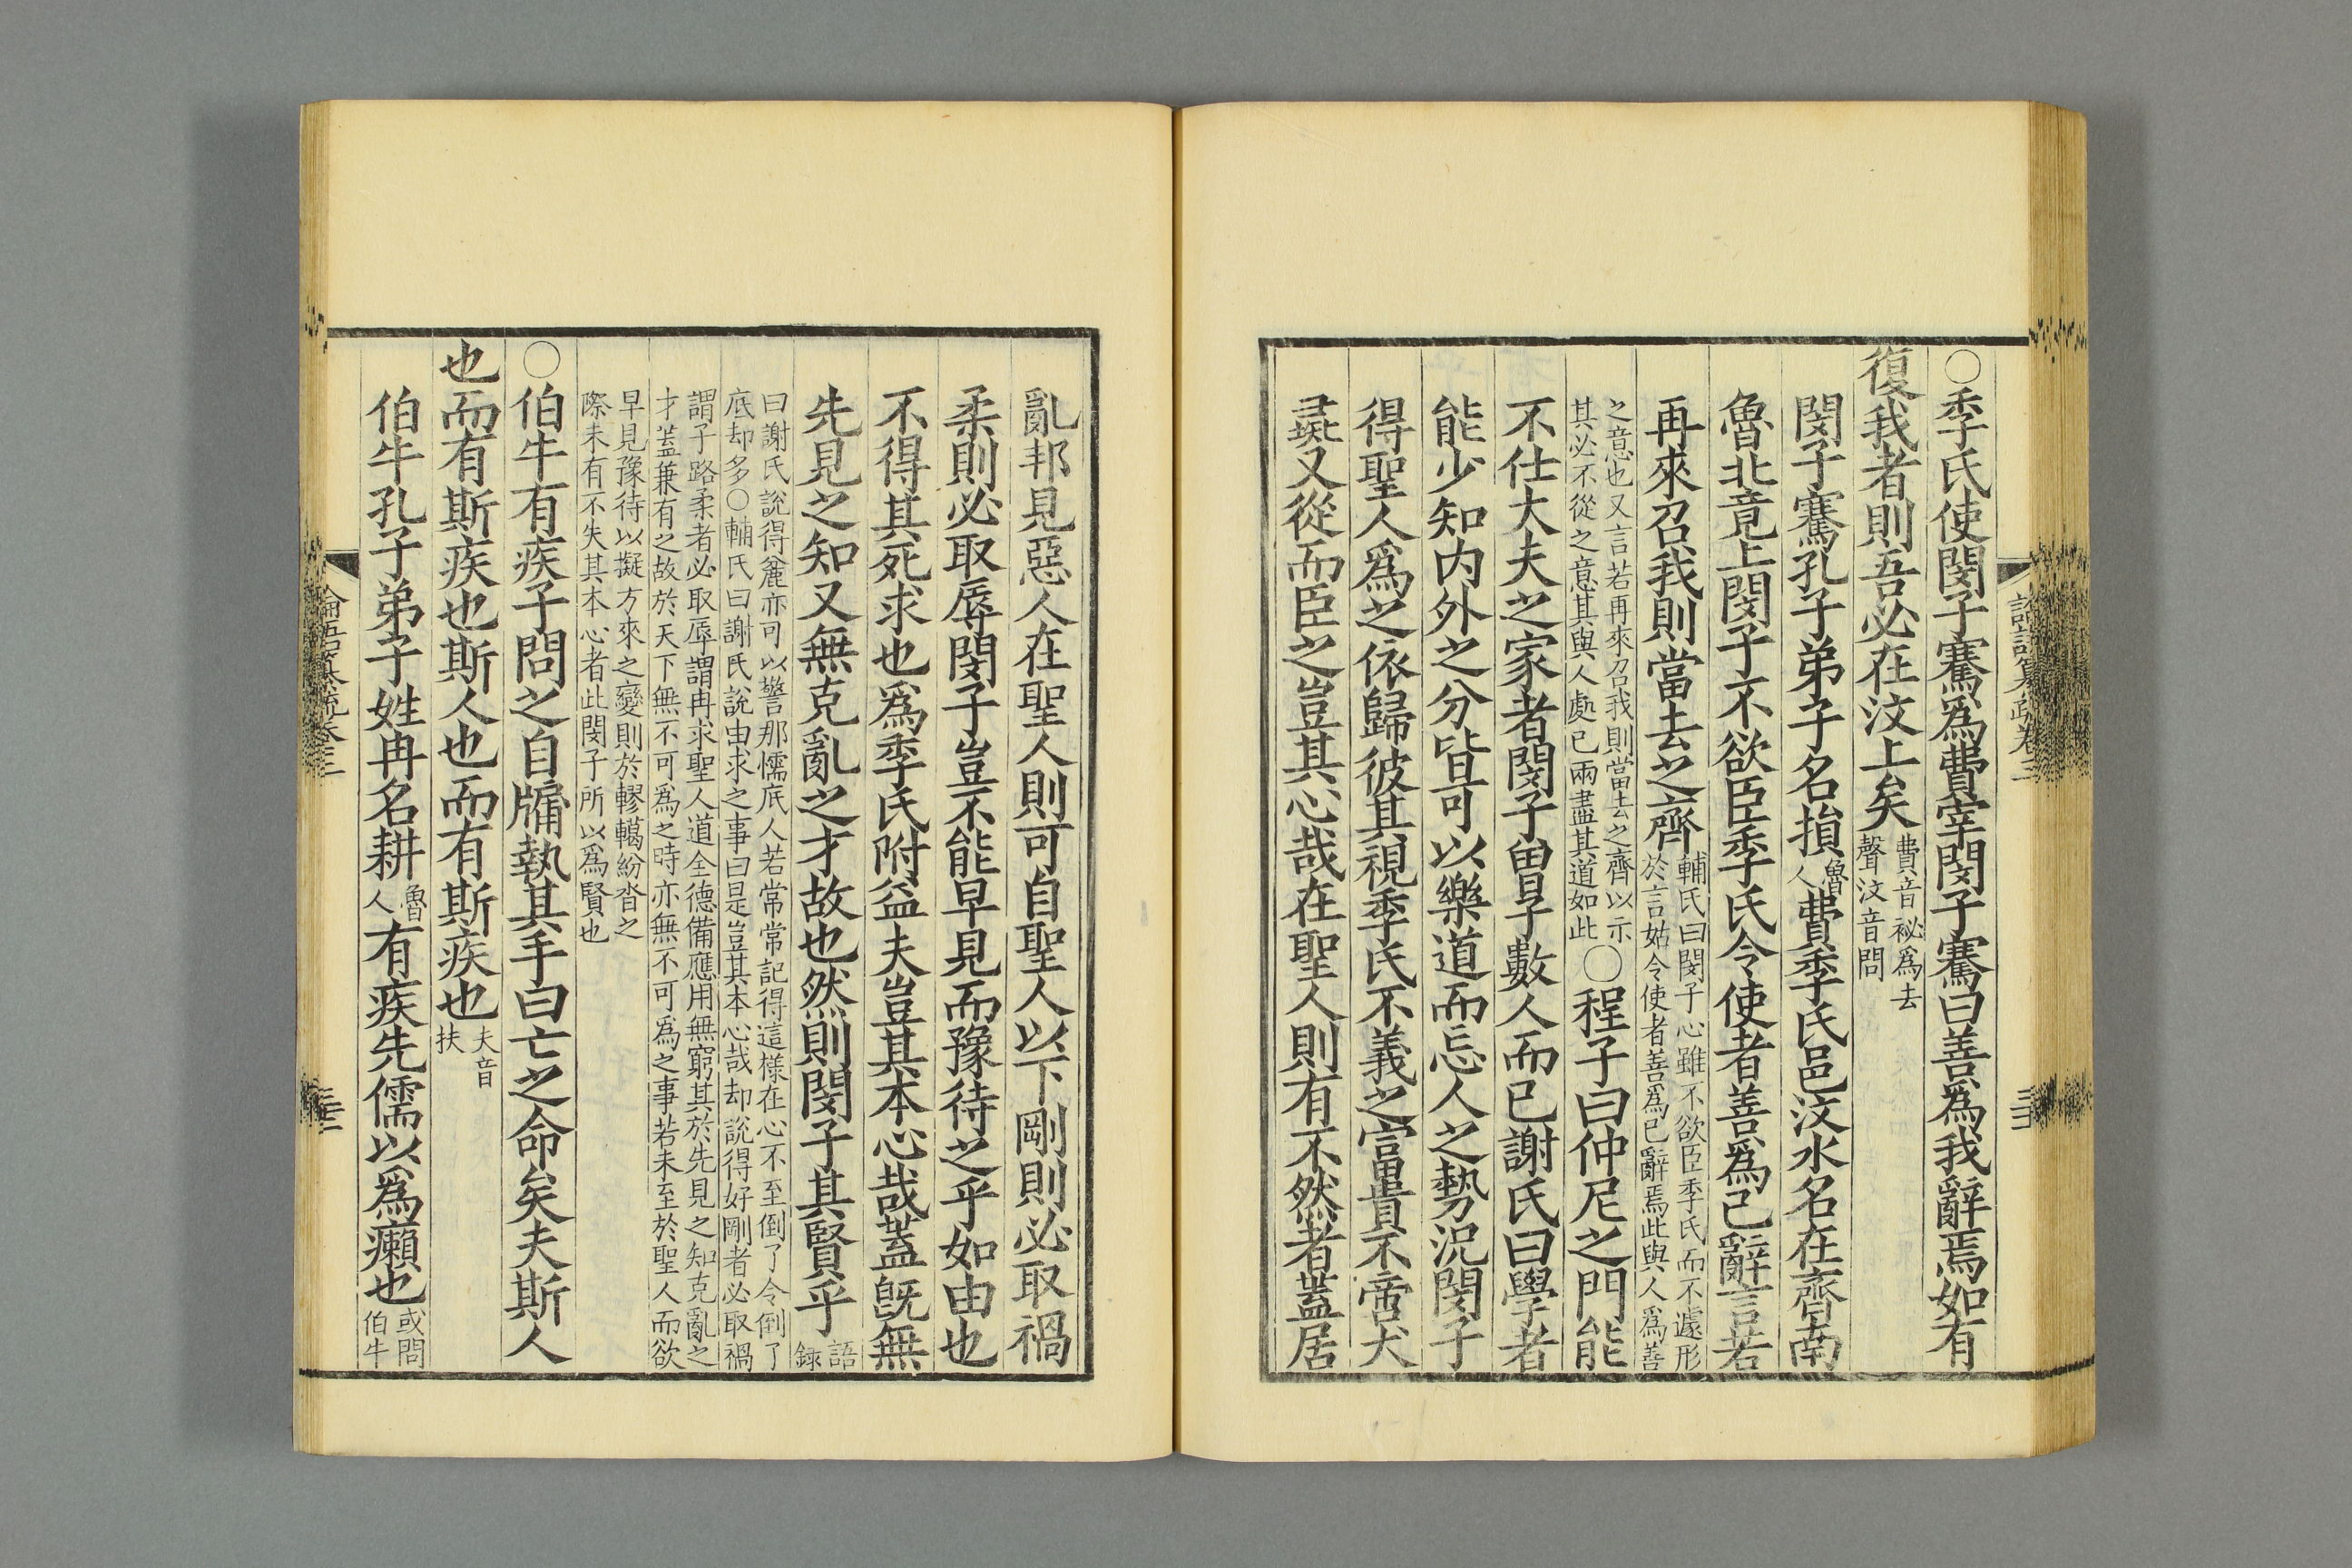 ○季氏使閔子騫爲費宰閔子騫曰善爲我辭焉如有
復我者則吾必在汶上矣費音祕爲去聲汶音問
閔子騫孔子弟子名損魯人費季氏邑汶水名在齊南
魯北竟上閔子不欲臣季氏令使者善爲己辭言若
再來召我則當去之齊輔氏曰閔子心雖不欲臣季氏而不遽形於言姑令使者善爲己辭焉此與人爲善
之意也又言若再來召我則當去之齊以示其必不從之意其與人處己兩盡其道如此○程子曰仲尼之門能
不仕大夫之家者閔子曽子數人而已謝氏曰學者
能少知内外之分皆可以樂道而忘人之勢況閔子
得聖人爲之依歸彼其視季氏不義之富貴不啻犬
彘又從而臣之豈其心哉在聖人則有不然者蓋居
亂邦見惡人在聖人則可自聖人以下剛則必取禍
柔則必取辱閔子豈不能早見而豫待之乎如由也
不得其死求也爲季氏附益夫豈其本心哉蓋旣無
先見之知又無克亂之才故也然則閔子其賢乎語錄
曰謝氏說得麄亦可以警那懦底人若常常記得這樣在心不至倒了今倒了底却多○輔氏曰謝氏說由求之事曰是豈其本心哉却說得好剛者必取禍
謂子路柔者必取辱謂冉求聖人道全德備應用無窮其於先見之知克亂之才蓋兼有之故於天下無不可爲之時亦無不可爲之事若未至於聖人而欲
早見豫待以擬方來之變則於轇轕紛沓之際未有不失其本心者此閔子所以爲賢也
○伯牛有疾子問之自牖執其手曰亡之命矣夫斯人
也而有斯疾也斯人也而有斯疾也夫音扶
伯牛孔子弟子姓冉名耕魯人有疾先儒以爲癩也或問伯牛
論語纂疏卷三